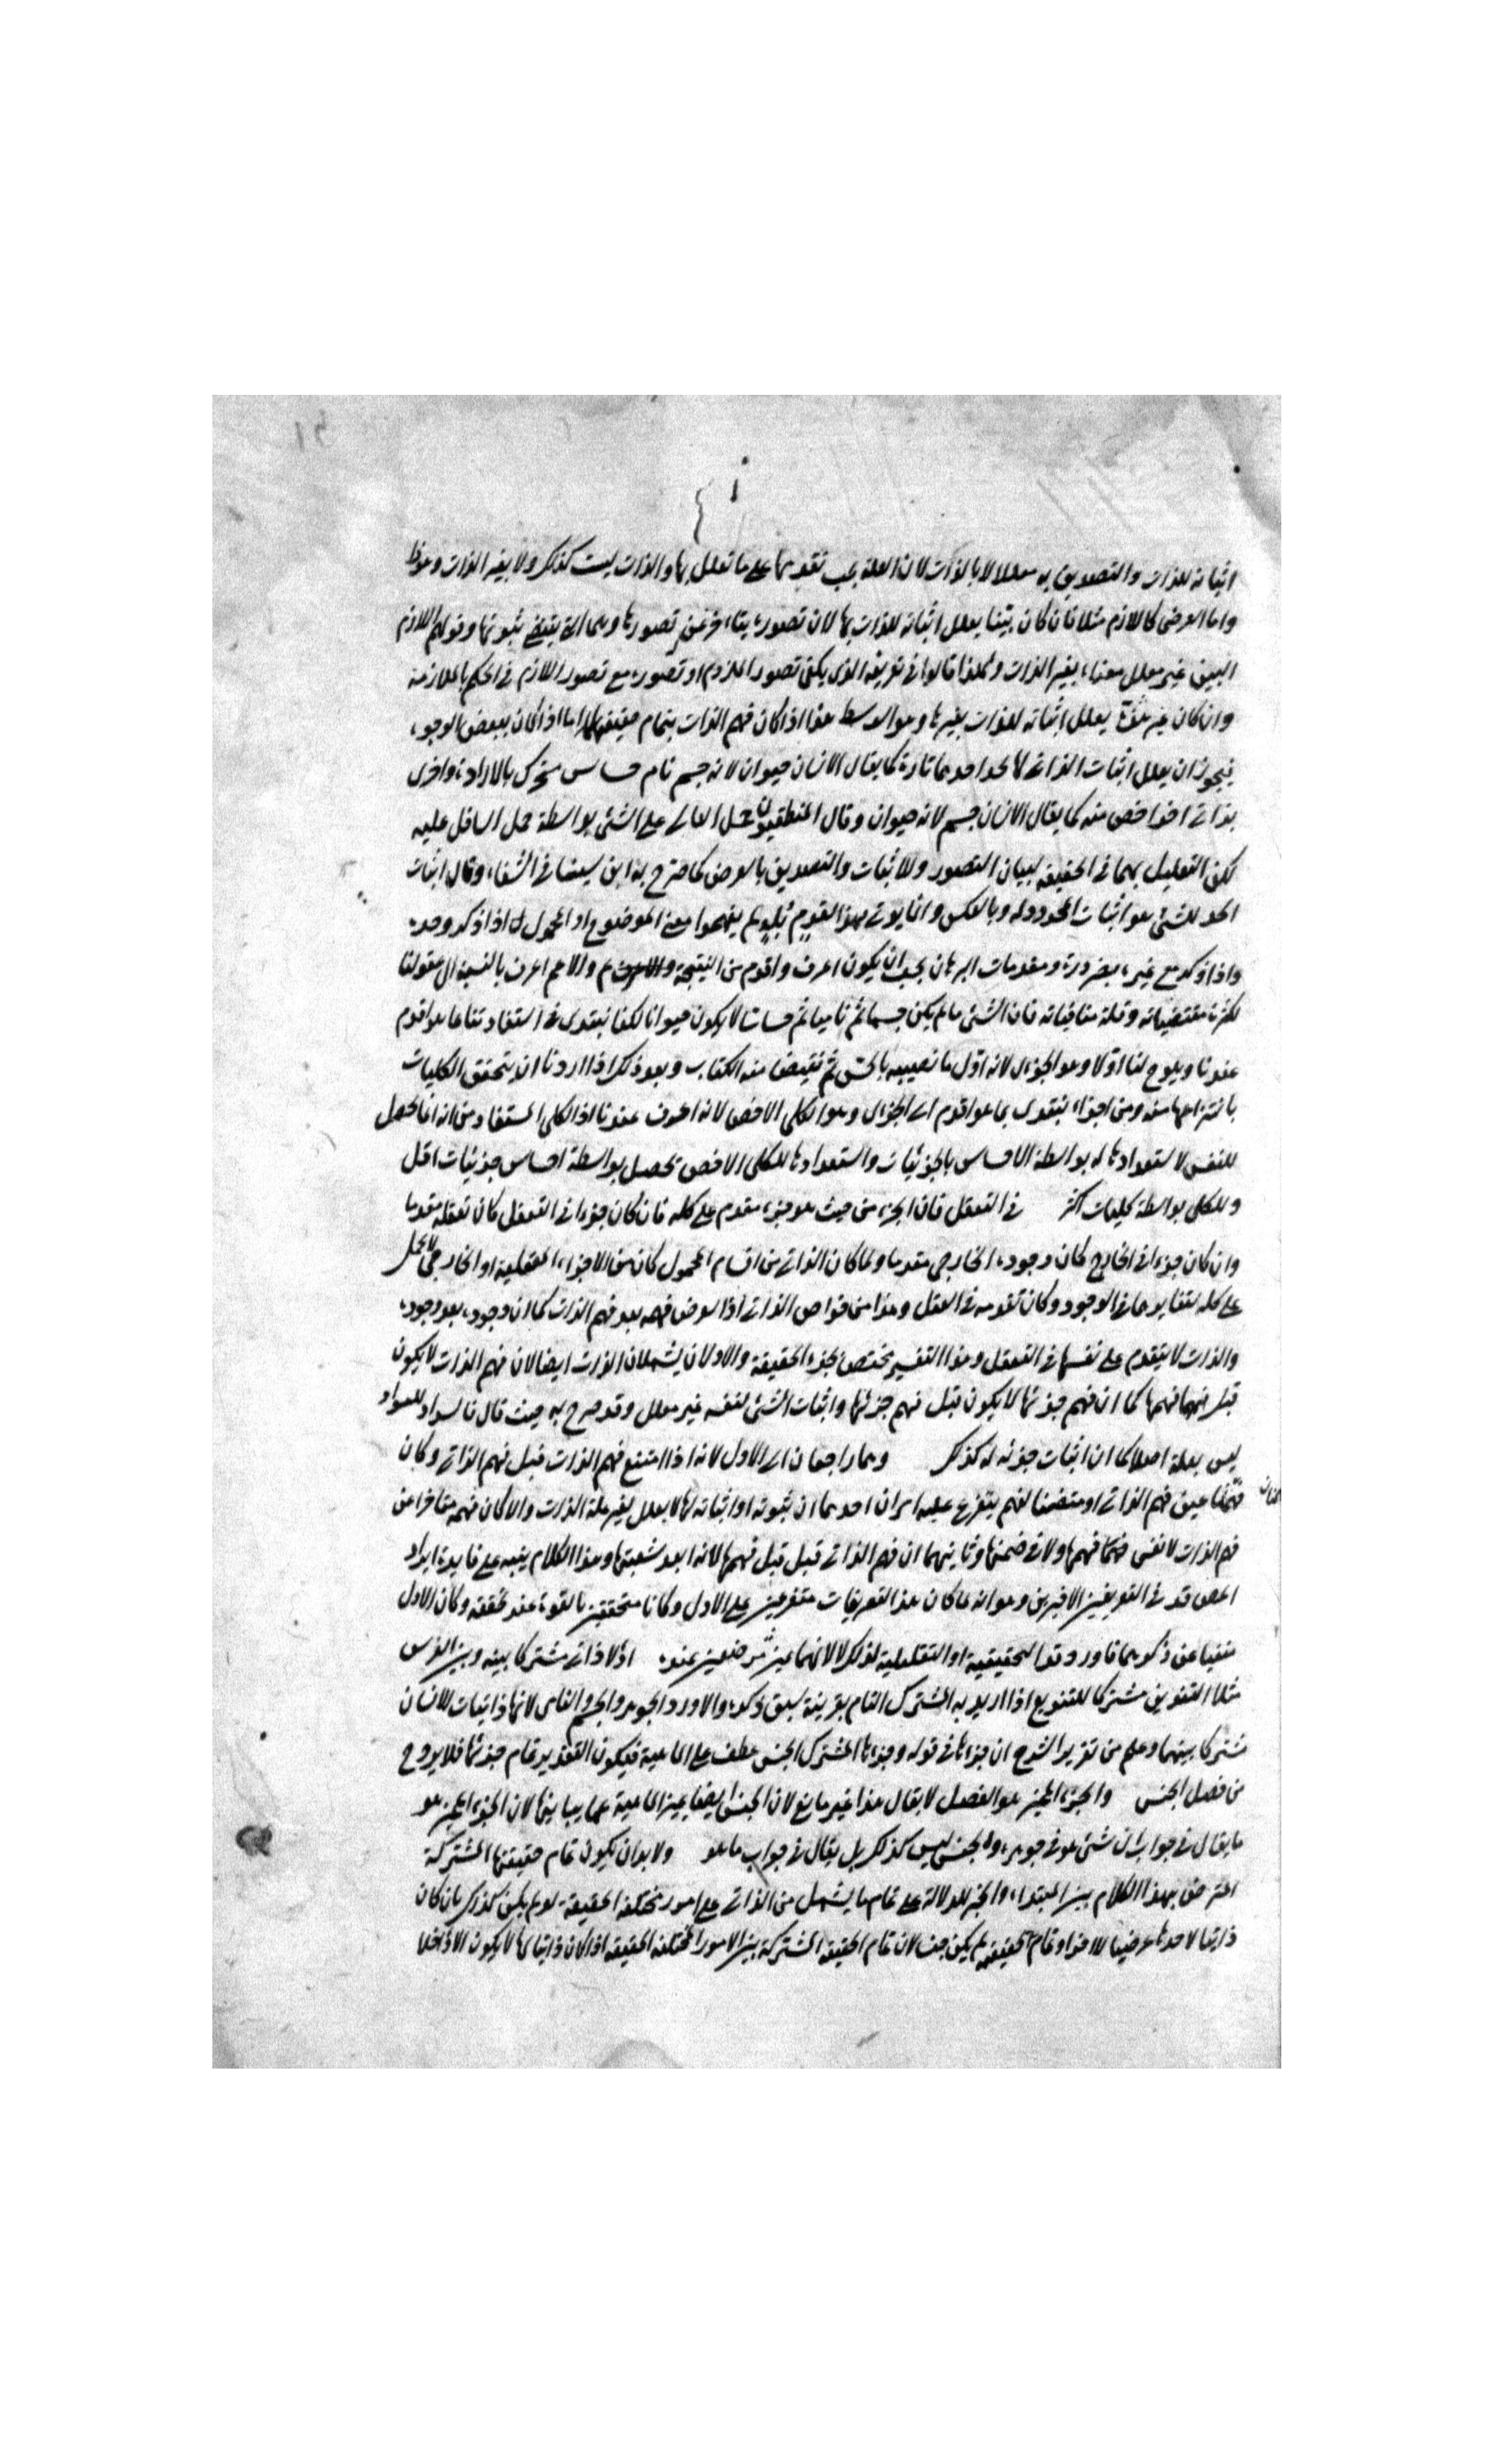 اثباته للذات والتصديق به معللا لا بالذات لان العلة يجب تقدمها على ما تعلل بها والذات ليست كذلك ولا بغير الذات وهو ظ
واما العرضى كاللازم مثلا فان كان بينا يعلل اثباته للذات بها لان تصوره يتاخر عن تصورها وهى التى يقتضى ثبوتها وقولهم اللازم
البين غير معلل معناه بغير الذات ولهذا قالوا فى تعريفه الذى يكفى تصور الملزوم او تصوره مع تصور اللازم فى الحكم بالملازمة
وان كان غير بين يعلل اثباته للذات بغيرها وهو الوسط هذا اذا كان فهم الذات بتمام حقيقتها اما اذا كان ببعض الوجوه
فيجوز ان يعلل اثبات الذاتى لها بحد احدهما تارة كما يقال الانسان حيوان لانه جسم نام حساس متحرك بالارادة واخرى
بذاتى اخر اخص منه كما يقال الانسان جسم لانه حيوان وقال المنطقيون حمل العالى على الشئ بواسطة حمل السافل عليه
لكن التعليل بهما فى الحقيقة لبيان التصور وللاثبات والتصديق بالعرض كما صرح به ابن سينا فى الشفاء وقال اثبات
الحد للشئ هو اثبات المحدود له وبالعكس وانما يؤتى بهذا لقوم لم يفهموا معنى الموضوع او المحمول اذا ذكر وحده
واذا ذكر مع غيره بضرورة ومقدمات البرهان يجب ان يكون اعرف واقدم من النتيجة والاعم اعرف بالنسبة الى عقولنا
لكثرة مقتضياته وقلة منافياته فان الشئ ما لم يكن جسما ثم ناميا ثم حساسا لا يكون حيوانا لكنا نبتدى فى استفادتنا بما هو اقدم
عندنا ويلوح لنا اولا وهو الجزئى لانه اول ما نصيبه بالحس ثم نقتنص منه الكليات وبعد ذلك اذا اردنا ان نتحقق الكليات
بانتزاعها منه ومن اجزائه نبتدى بما هو اقدم الى الجزئى وهو الكلى الاخص لانه اعرف عندنا اذ الكلى المستفاد منه انما يحصل
للنفس لاستعدادها له بواسطة الاحساس بالجزئيات واستعدادها للكلى الاخص يحصل بواسطة احساس جزئيات اقل
وللكلى بواسطة كليات اكثر فى التعقل فان الجزء من حيث هو جزء مقدم على كله فان كان جزءا فى التعقل كان تعقله مقدما
وان كان جزءا فى الخارج كان وجوده الخارجى مقدما ولما كان الذاتى من اقسام المحمول كان من الاجزاء العقلية اذ الخارجى لا يحمل
على كله لتغايرهما فى الوجود وكان تقدمه فى العقل وهذا من خواص الذاتى اذ العرض فهمه بعد فهم الذات كما ان وجوده بعد وجوده
والذات لا يتقدم على نفسها فى التعقل وهذا التفسير يختص بجزء الحقيقة والاولان يشملان الذات ايضا لان فهم الذات لا يكون
قبل فهمها كما ان فهم جزئها لا يكون قبل فهم جزئها واثبات الشئ لنفسه غير معلل وقد صرح به حيث قال فالسواد للسواد
ليس بعلة اصلا كما ان اثبات جزئه له كذلك وهما راجعان الى الاول لانه اذا امتنع فهم الذات قبل فهم الذاتى وكان
فهمها عين فهم الذاتى او متضمنا لفهم يتفرع عليه امران احدهما ان ثبوته او اثباته لها لا يعلل بغير علة الذات والا كان فهمه متاخرا عن
فهم الذات لا نفس فهمها ولا فى ضمنها وثانيهما ان فهم الذاتى قبل فهمها لانه وهذا الكلام ينبه على فايدة ايراد
المص قد فى التعريفين الاخيرين وهو انه لما كان هذا التعريفات متفرعين على الاول وكانا متحققين بالقوة عند تحققه وكان الاول
مغنيا عن ذكرهما اورد قد التحقيقية او التقليلية لذلك لا لانهما غير مرضيين عنده اذ لا ذاتى مشتركا بينه وبين الفرس
مثلا التنوين مشتركا للتنويع اذا اريد به المشترك التام بقرينة سبق ذكره والا ورد الجوهر والجسم والنامى لانها ذاتيات للانسان
مشتركا بينهما وعلم من تقرير الشرح ان جزءها فى قوله وجزءها المشترك الجنس عطف على الماهية فيكون التقدير تمام جزئها فلا يرد
من فصل الجنس والجزء المميز هو الفصل لا يقال هذا غير مانع لان الجنس ايضا يميز الماهية عما يباينها لان الجزء المميز هو
ما يقال فى جواب اى شئ هو فى جوهره والجنس ليس كذلك بل يقال فى جواب ما هو ولا بد ان يكون تمام حقيقتها المشتركة
اعترض بهذا الكلام بين المبتداء والخبر للدلالة على تمام ما يشمل من الذاتى على امور مختلفة الحقيقة لو لم يكن كذلك بان كان
ذاتيا لاحدها عرضيا للاخر او تمام الحقيقة لم يكن جنسا لان تمام الحقيقة المشتركة بين الامور المختلفة الحقيقة اذا كان ذاتيا لها لا يكون الا داخلا